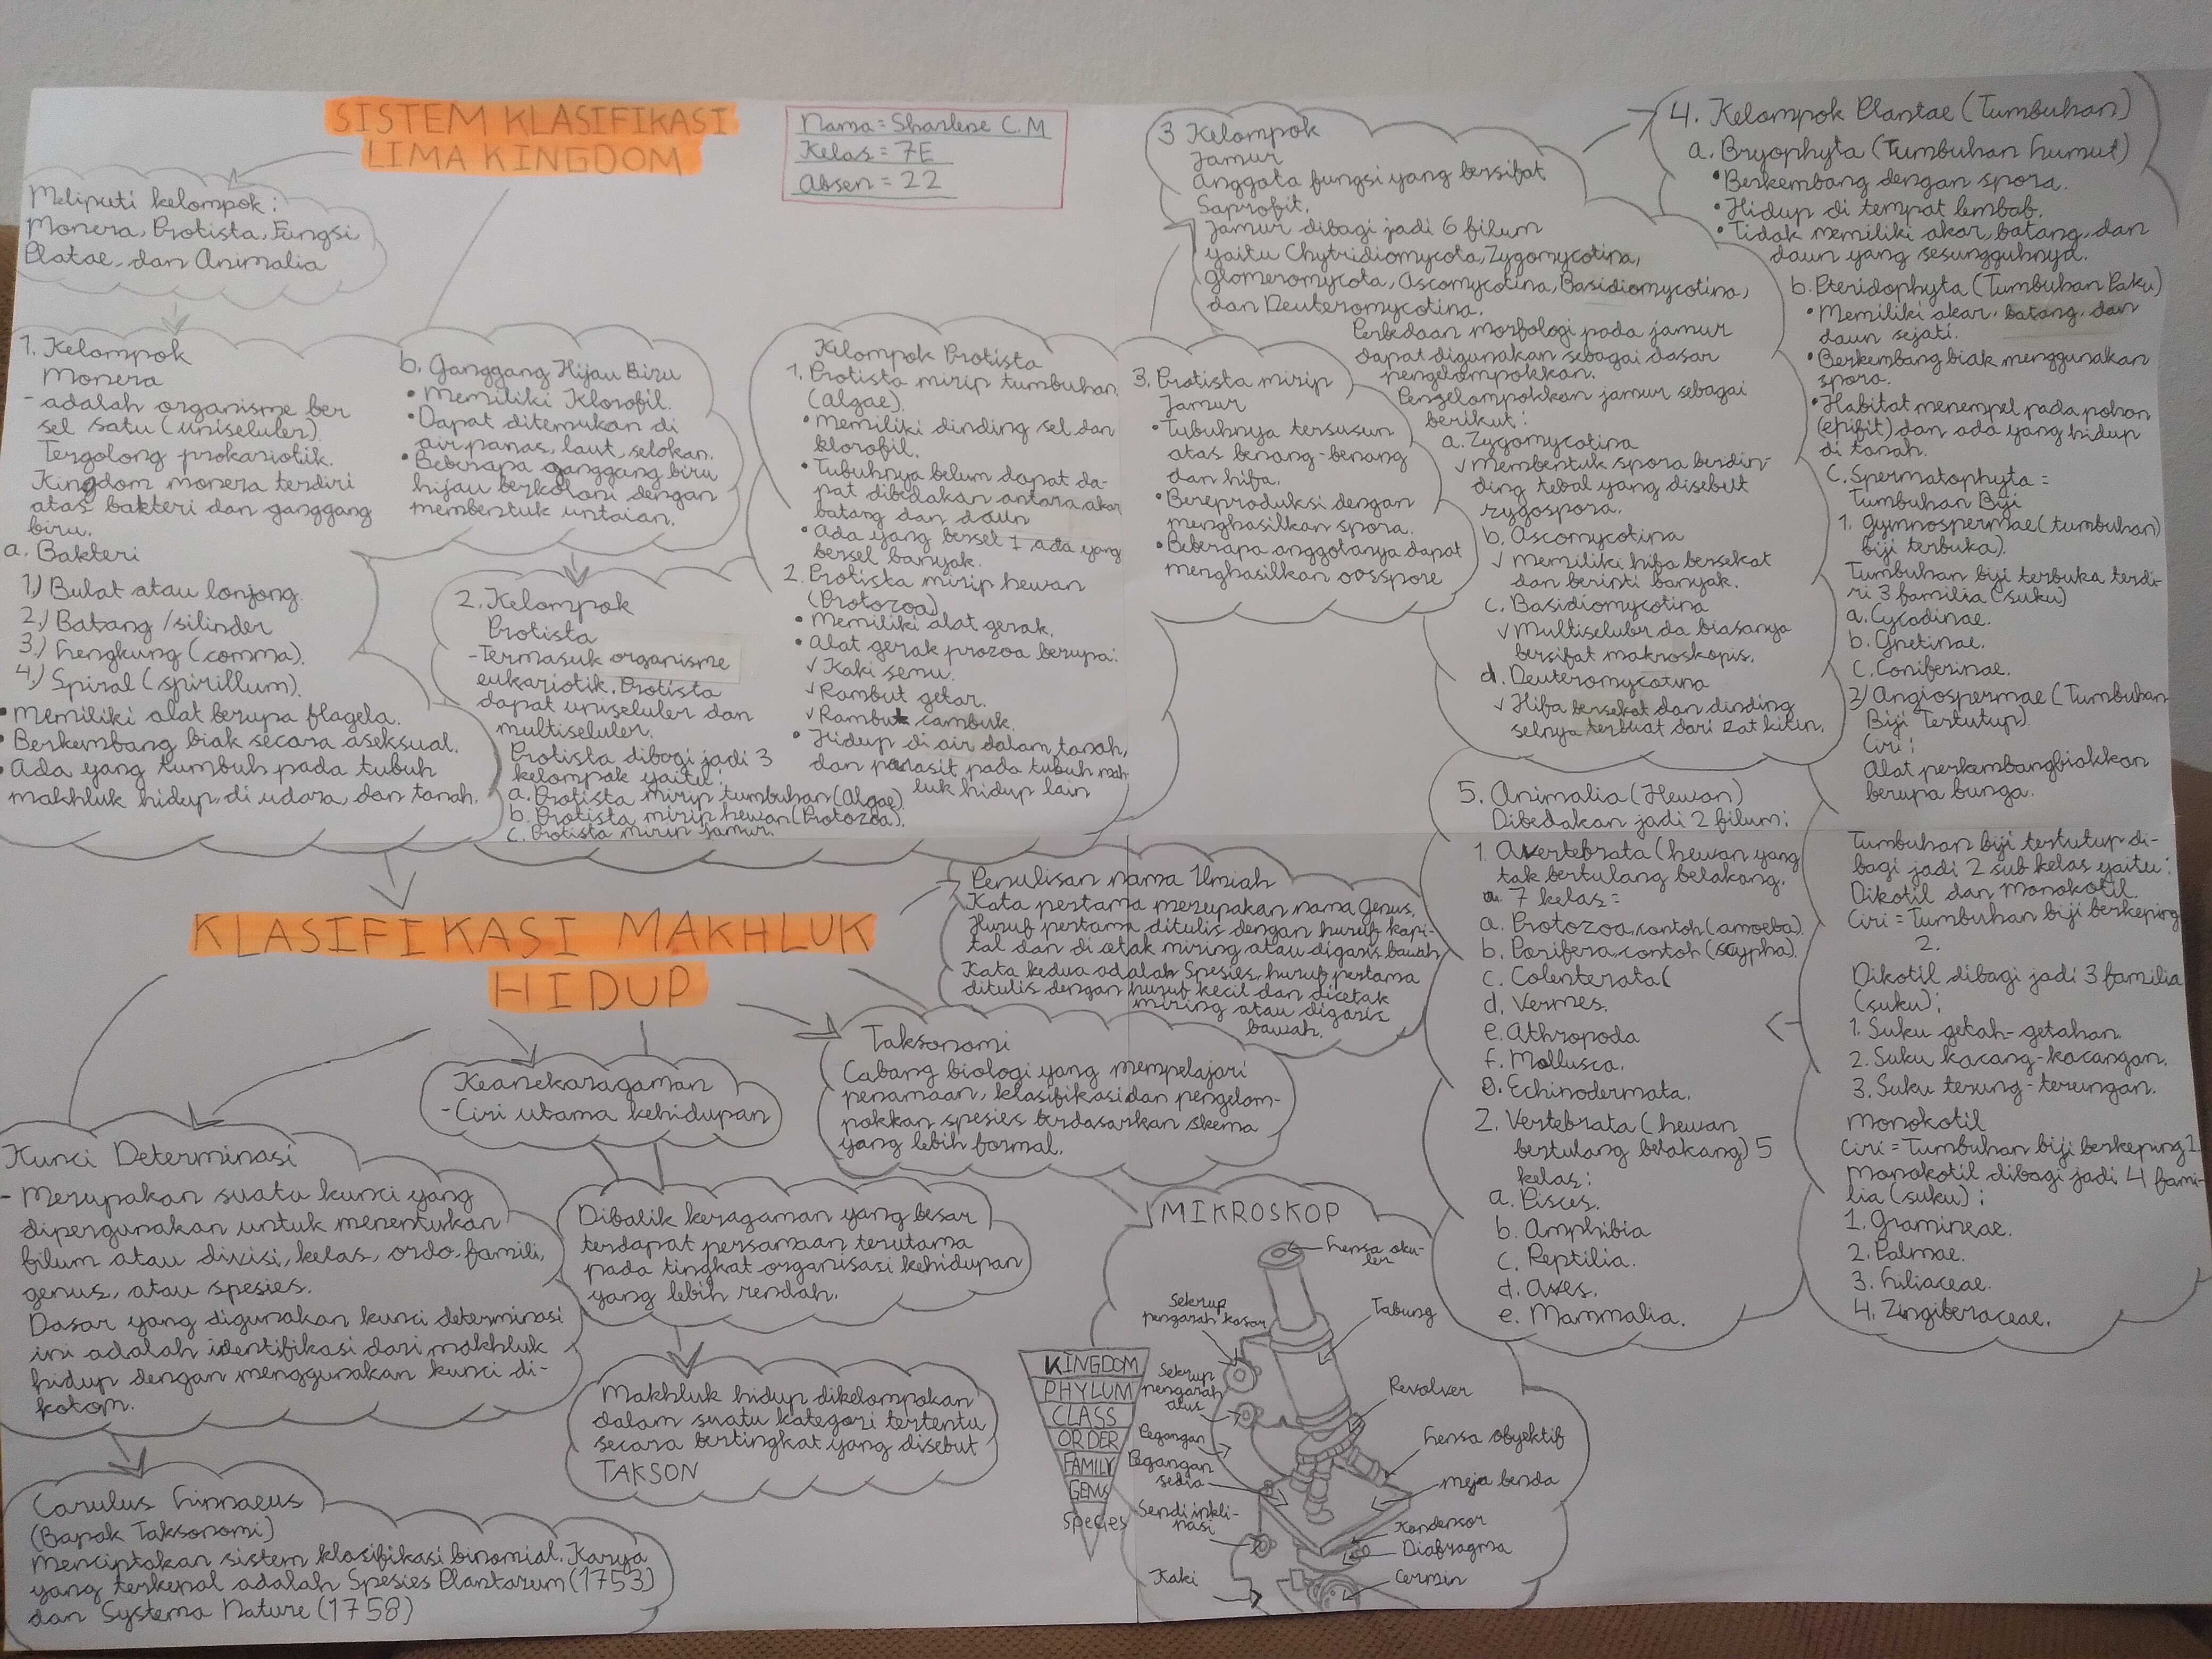 SISTEM KLASIFIKASI
LIMA KINGDOM
Nama = Sharlene C.M
Kelas = 7E
Absen = 22
Meliputi kelompok :
Monera, Protista, Fungsi
Platae, dan Animalia
1. Kelompok
Monera
- adalah organisme ber
sel satu (uniseluler).
Tergolong prokariotik.
Kingdom monera terdiri
atas bakteri dan ganggang
biru.
a. Bakteri
1.) Bulat atau lonjong.
2.) Batang / silinder
3.) Lengkung (comma).
4.) Spiral (spirillum).
• Memiliki alat berupa flagela.
• Berkembang biak secara aseksual.
• Ada yang tumbuh pada tubuh
makhluk hidup, di udara, dan tanah.
b. Ganggang Hijau Biru
• Memiliki Klorofil.
• Dapat ditemukan di
air panas, laut, selokan.
• Beberapa ganggang biru
hijau berkoloni dengan
membentuk untaian.
2. Kelompok
Protista
- Termasuk organisme
eukariotik. Protista
dapat uniseluler dan
multiseluler.
Protista dibagi jadi 3
kelompok yaitu :
a. Protista mirip tumbuhan (Algae)
b. Protista mirip hewan (Protozoa).
c. Protista mirip jamur.
Kelompok Protista
1. Protista mirip tumbuhan
(Algae).
• Memiliki dinding sel dan
klorofil.
• Tubuhnya belum dapat da-
pat dibedakan antara akar
batang dan daun
• Ada yang bersel 1, ada yang
bersel banyak.
2. Protista mirip hewan
(Protozoa)
• Memiliki alat gerak.
• Alat gerak prozoa berupa:
√ Kaki semu.
√ Rambut getar.
√ Rambut cambuk.
• Hidup di air dalam tanah,
dan parasit pada tubuh mah
luk hidup lain
3. Protista mirip
Jamur
• Tubuhnya tersusun
atas benang-benang
dan hifa.
• Bereproduksi dengan
menghasilkan spora.
• Beberapa anggotanya dapat
menghasilkan oosspore
3 Kelompok
Jamur
Anggota fungsi yang bersifat
Saprofit.
Jamur dibagi jadi 6 filum
yaitu Chytridiomycota, Zygomycotina,
Glomeromycota, Ascomycotina, Basidiomycotina,
dan Deuteromycotina.
Perbedaan morfologi pada jamur
dapat digunakan sebagai dasar
pengelompokkan.
Pengelompokkan jamur sebagai
berikut :
a. Zygomycotina
√ Membentuk spora berdin-
ding tebal yang disebut
zygospora.
b. Ascomycotina
√ Memiliki hifa bersekat
dan berinti banyak.
c. Basidiomycotina
√ Multiseluler da biasanya
bersifat makroskopis.
d. Deuteromycotina
√ Hifa bersekat dan dinding
selnya terbuat dari zat kitin.
4. Kelompok Plantae (Tumbuhan)
a. Bryophyta (Tumbuhan lumut)
• Berkembang dengan spora.
• Hidup di tempat lembab.
• Tidak memiliki akar, batang, dan
daun yang sesungguhnya.
b. Pteridophyta (Tumbuhan Paku)
• Memiliki akar, batang, dan
daun sejati.
• Berkembang biak menggunakan
spora.
• Habitat menempel pada pohon
(epifit) dan ada yang hidup
di tanah.
C. Spermatophyta =
Tumbuhan Biji
1. Gymnospermae (tumbuhan)
biji terbuka).
Tumbuhan biji terbuka terdi-
ri 3 familia (suku)
a. Cycadinae.
b. Gnetinae.
c. Coniferinae.
2) Angiospermae (Tumbuhan
Biji Tertutup).
Ciri :
Alat perkembangbiakkan
berupa bunga.
Tumbuhan biji tertutup di-
bagi jadi 2 sub kelas yaitu :
Dikotil dan Monokotil.
Ciri = Tumbuhan biji berkeping
2.
Dikotil dibagi jadi 3 familia
(suku) :
1. Suku getah-getahan.
2. Suku kacang-kacangan.
3. Suku terung-terungan.
Monokotil
Ciri = Tumbuhan biji berkeping 1.
Monokotil dibagi jadi 4 fami-
lia (suku) :
1. Gramineae.
2. Palmae.
3. Liliaceae.
4. Zingiberaceae.
5. Animalia (Hewan)
Dibedakan jadi 2 filum:
1. Avertebrata (hewan yang
tak bertulang belakang.
7 kelas =
a. Protozoa, contoh (amoeba).
b. Porifera, contoh (scypha).
c. Colenterata (
d. Vermes.
e. Athropoda
f. Mollusca.
g. Echinodermata.
2. Vertebrata (hewan
bertulang belakang) 5
kelas:
a. Pisces.
b. Amphibia
c. Reptilia.
d. Aves.
e. Mammalia.
KLASIFIKASI MAKHLUK
HIDUP
Penulisan nama Ilmiah
Kata pertama merupakan nama Genus,
Huruf pertama ditulis dengan huruf kapi-
tal dan di cetak miring atau digaris bawah
Kata kedua adalah Spesies, huruf pertama
ditulis dengan huruf kecil dan dicetak
miring atau digaris
bawah.
Taksonomi
Cabang biologi yang mempelajari
penamaan, klasifikasi dan pengelom-
pokkan spesies berdasarkan skema
yang lebih formal.
Keanekaragaman
- Ciri utama kehidupan
Dibalik keragaman yang besar
terdapat persamaan terutama
pada tingkat organisasi kehidupan
yang lebih rendah.
Makhluk hidup dikelompokan
dalam suatu kategori tertentu
secara bertingkat yang disebut
TAKSON
Kunci Determinasi
- Merupakan suatu kunci yang
dipergunakan untuk menentukan
filum atau divisi, kelas, ordo, famili,
genus, atau spesies.
Dasar yang digunakan kunci determinasi
ini adalah identifikasi dari makhluk
hidup dengan menggunakan kunci di-
kotom.
Carulus Linnaeus
(Bapak Taksonomi)
Menciptakan sistem klasifikasi binomial. Karya
yang terkenal adalah Spesies Plantarum (1753)
dan Systema Nature (1758)
KINGDOM
PHYLUM
CLASS
ORDER
FAMILY
GENUS
Species
MIKROSKOP
Lensa oku-
ler
Tabung
Sekrup
pengarah kasar
Sekrup
pengarah
alus
Pegangan
Pegangan
sedia
Sendi inkli-
nasi
Kaki
Revolver
Lensa obyektif
Meja benda
Kondensor
Diafragma
Cermin